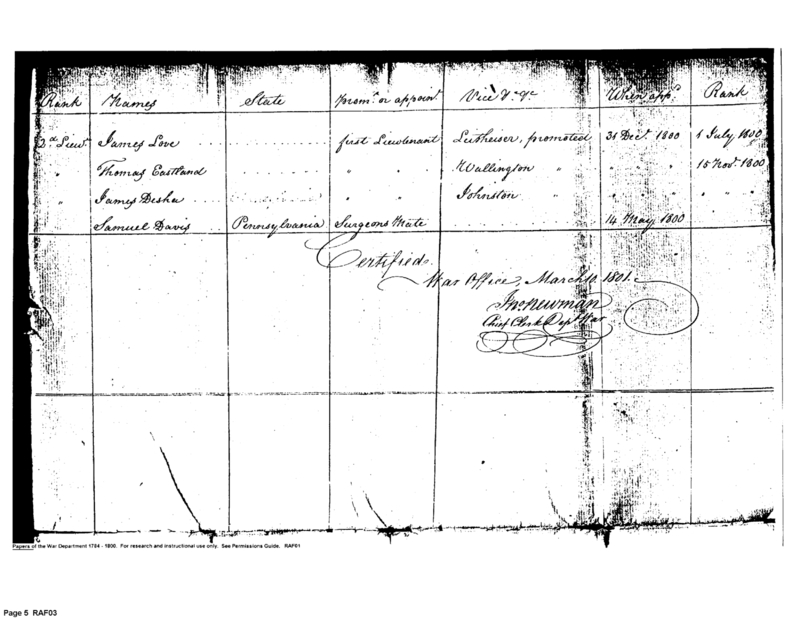 Rank Names State prom.d or appoint.d Vice &c &c When app.d Rank
2.d Lieu.t James Love first Lieutenant promoted 31 Dec.r 1800 1 July 1800
" Thomas Eastland " " Wallington " " " " 15 Nov.r 1800
" James Desha " " Johnston " " " " " " "
Samuel Davis Pennsylvania Surgeons Mate 14 May 1800
Certified.
War Office, March 10. 1801.
Jno. Newman
Chief Clerk Dep.t War
Papers of the War Department 1784 - 1800. For research and instructional use only. See Permissions Guide. RAF01
Page 5 RAF03